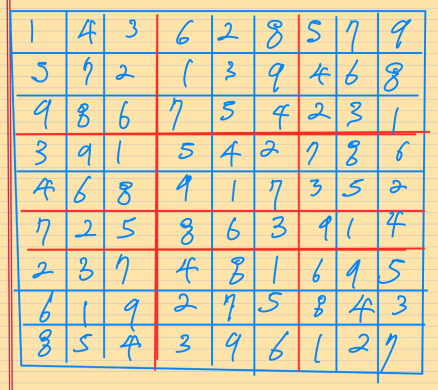 1 4 3 6 2 8 5 7 9
5 7 2 1 3 9 4 6 8
9 8 6 7 5 4 2 3 1
3 9 1 5 4 2 7 8 6
4 6 8 9 1 7 3 5 2
7 2 5 8 6 3 9 1 4
2 3 7 4 8 1 6 9 5
6 1 9 2 7 5 8 4 3
8 5 4 3 9 6 1 2 7